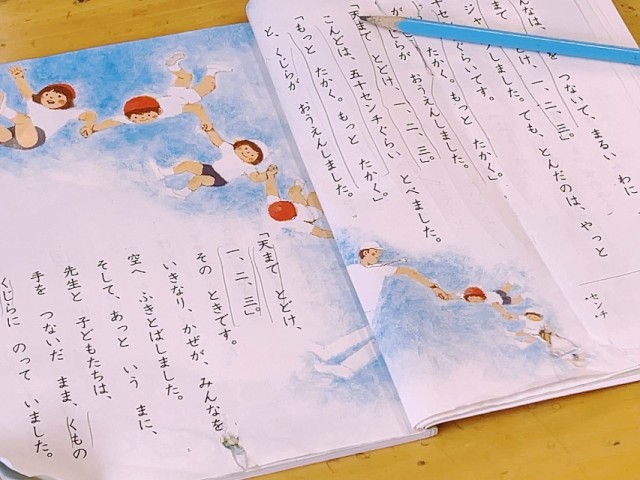 んなは、を つないで、まるい わに
とどけ、一、二、三。」
しました。でも、とんだのは、やっと
十センチぐらいです。
たかく。もっと たかく。
が おうえんしました。
「天まで とどけ、一、二、三。」
こんどは、五十センチぐらい とべました。
「もっと たかく。もっと たかく。」
と、くじらが おうえんしました。
・センチ・
「天まで とどけ、
一、二、三。」
その ときです。
いきなり、かぜが、みんなを
空へ ふきとばしました。
そして、あっと いう まに、
先生と 子どもたちは、
手を つないだ まま、くもの
くじらに のって いました。